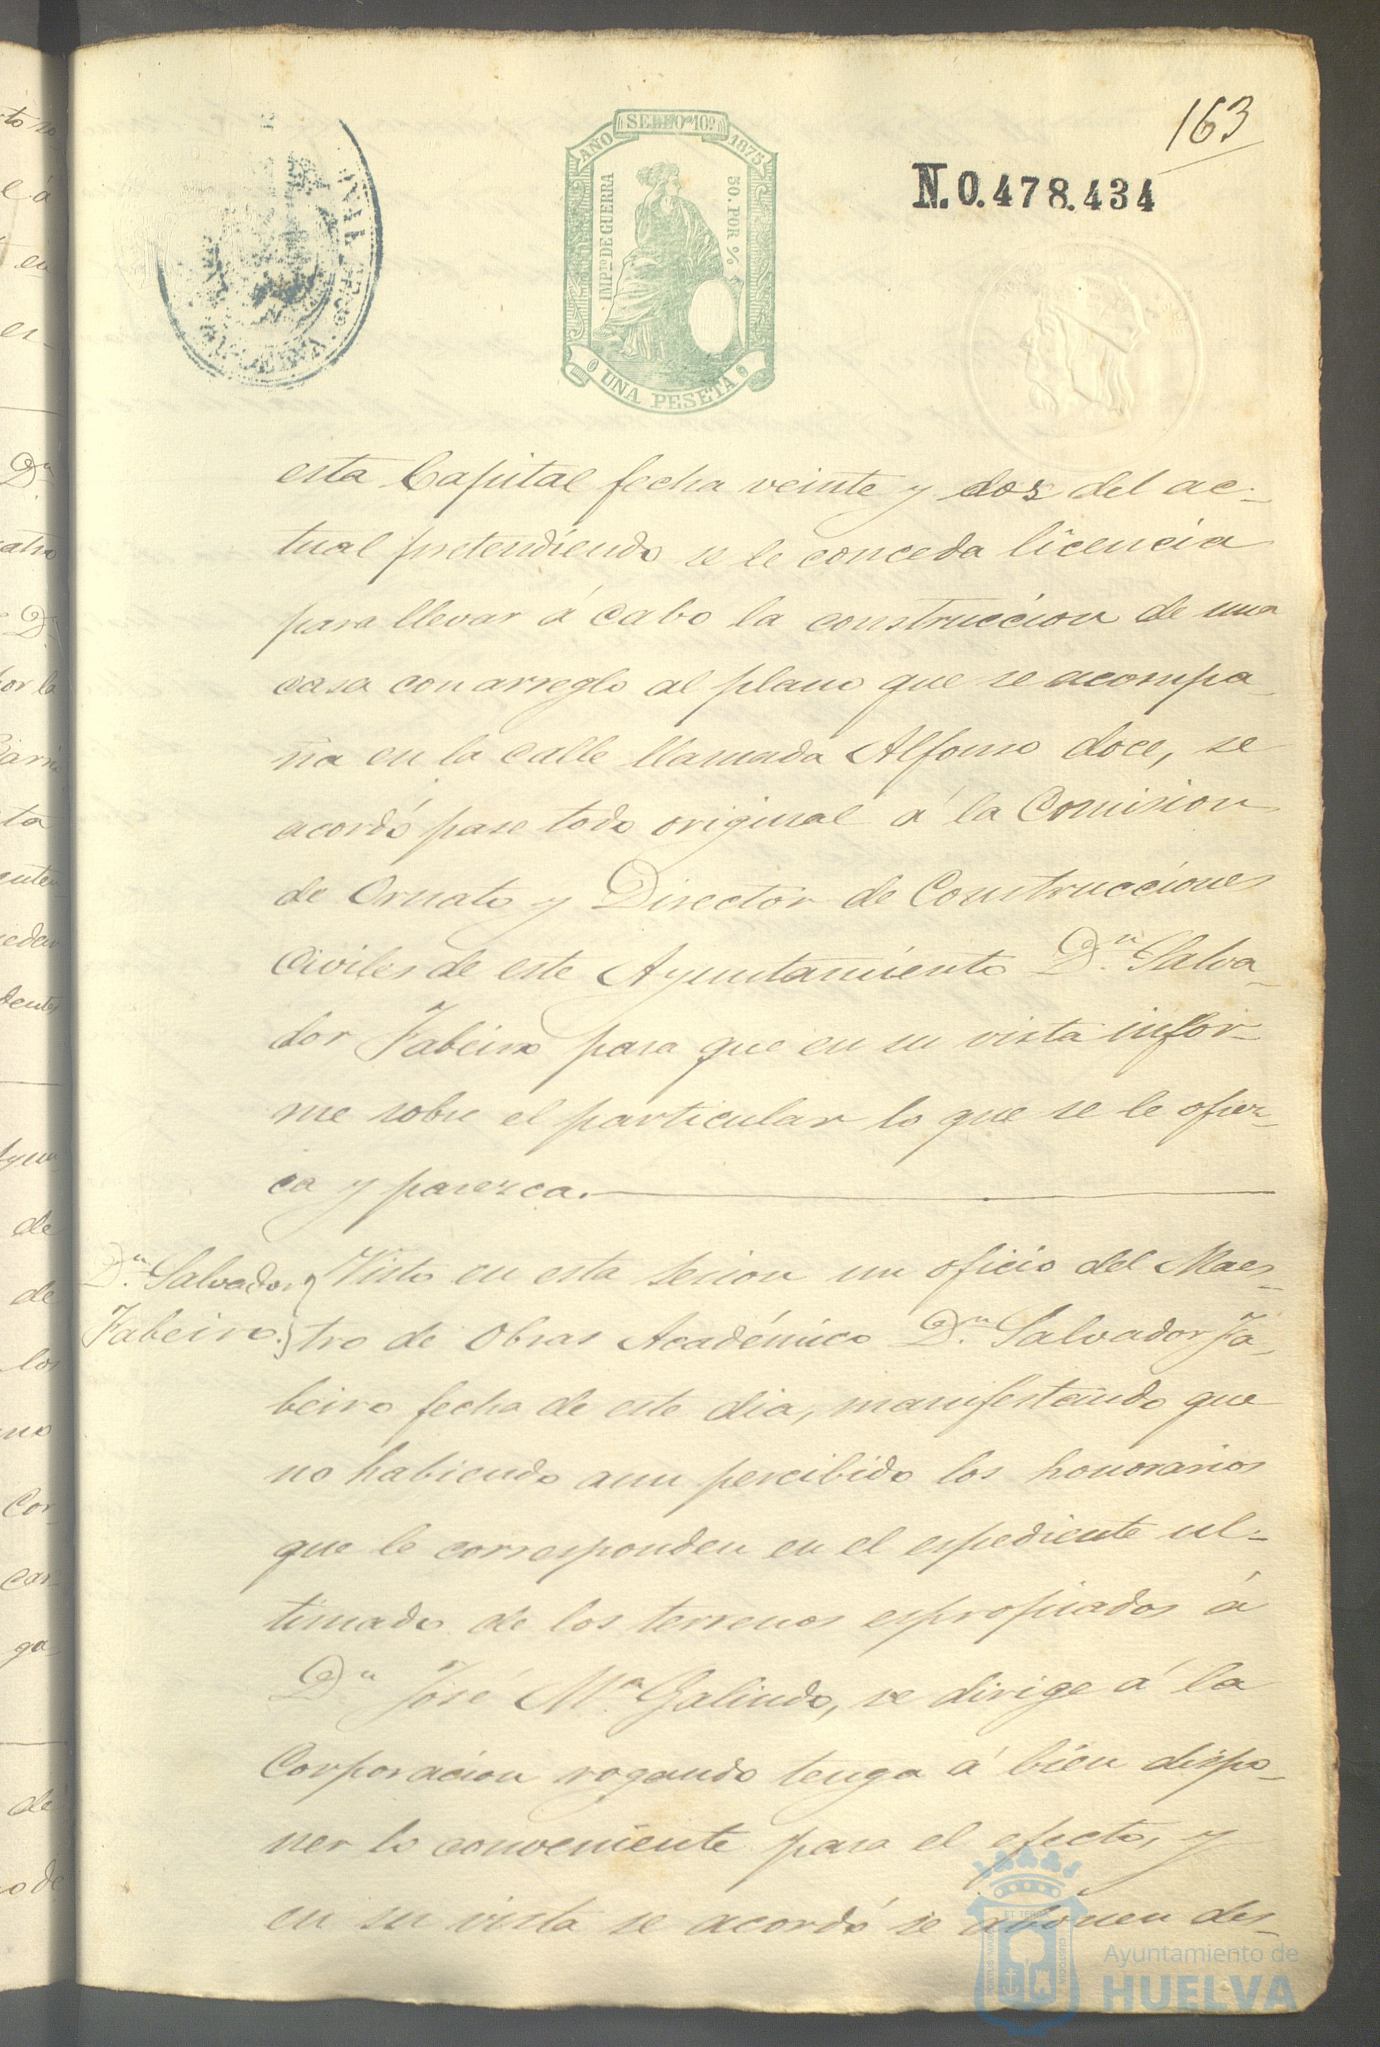 163
SELLO 10º
AÑO 1875
IMPto DE GUERRA
50. POR %
UNA PESETA
N.0.478.434
esta Capital fecha veinte y dos del ac-
tual pretendiendo se le conceda licencia
para llevar á cabo la construccion de una
casa con arreglo al plano que se acompa
ña en la calle llamada Alfonso doce, se
acordó pase todo original á la Comision
de Ornato y Director de Construcciones
Civiles de este Ayuntamiento Dn. Salva-
dor Fabeiro para que en su vista infor-
me sobre el particular lo que se le ofrez-
ca y parezca.
Dn. Salvador
Fabeiro.
Visto en esta sesion un oficio del Maes-
tro de Obras Académico Dn. Salvador Fa-
beiro fecha de este dia, manifestando que
no habiendo aun percibido los honorarios
que le corresponden en el espediente ul-
timado de los terrenos espropiados á
Dn José Ma. Galindo, se dirige á la
Corporacion rogando tenga á bien dispo-
ner lo conveniente para el efecto, y
en su vista se acordó se abonen des-
Ayuntamiento de
HUELVA